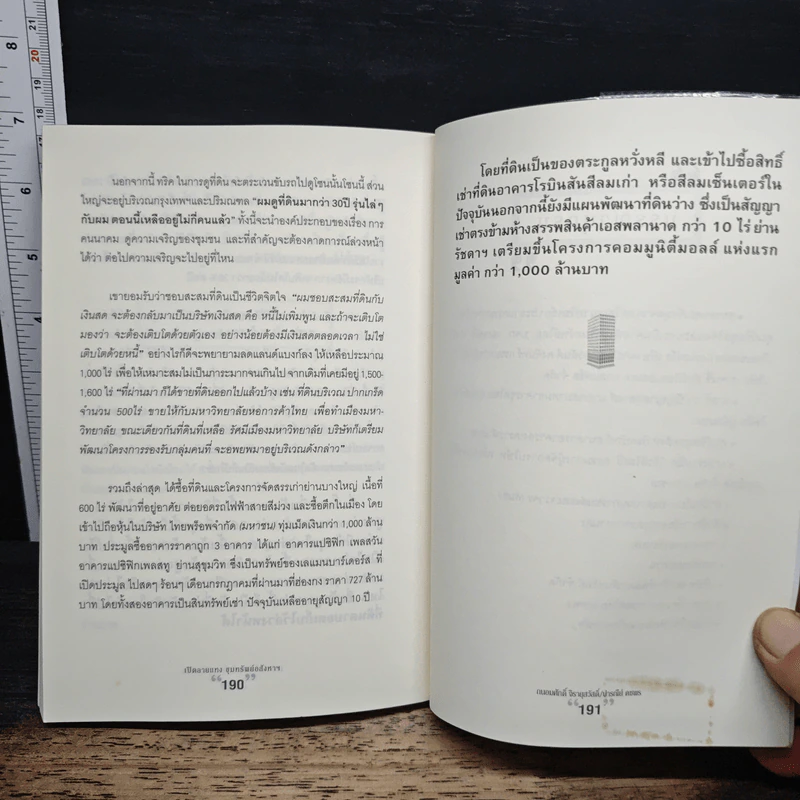 นอกจากนี้ ทริค ในการดูที่ดิน จะตระเวนขับรถไปดูโซนนั้นโซนนี้ ส่วน
ใหญ่จะอยู่บริเวณกรุงเทพฯและปริมณฑล "ผมดูที่ดินมากว่า 30ปี รุ่นไล่ๆ
กับผม ตอนนี้เหลืออยู่ไม่กี่คนแล้ว" ทั้งนี้จะนำองค์ประกอบของเรื่อง การ
คนนาคม ดูความเจริญของชุมชน และที่สำคัญจะต้องคาดการณ์ล่วงหน้า
ได้ว่า ต่อไปความเจริญจะไปอยู่ที่ไหน
เขายอมรับว่าชอบสะสมที่ดินเป็นชีวิตจิตใจ "ผมชอบสะสมที่ดินกับ
เงินสด จะต้องกลับมาเป็นบริษัทเงินสด คือ หนี้ไม่เพิ่มพูน และถ้าจะเติบโต
มองว่า จะต้องเติบโตด้วยตัวเอง อย่างน้อยต้องมีเงินสดตลอดเวลา ไม่ใช่
เติบโตด้วยหนี้" อย่างไรก็ดีจะพยายามลดแลนด์แบงก์ลง ให้เหลือประมาณ
1,000 ไร่ เพื่อให้เหมาะสมไม่เป็นภาระมากจนเกินไป จากเดิมที่เคยมีอยู่ 1,500-
1,600 ไร่ "ที่ผ่านมา ก็ได้ขายที่ดินออกไปแล้วบ้าง เช่น ที่ดินบริเวณ ปากเกร็ด
จำนวน 500ไร่ ขายให้กับมหาวิทยาลัยหอการค้าไทย เพื่อทำเมืองมหา-
วิทยาลัย ขณะเดียวกันที่ดินที่เหลือ รัศมีเมืองมหาวิทยาลัย บริษัทก็เตรียม
พัฒนาโครงการรองรับกลุ่มคนที่ จะอพยพมาอยู่บริเวณดังกล่าว"
รวมถึงล่าสุด ได้ซื้อที่ดินและโครงการจัดสรรเก่าย่านบางใหญ่ เนื้อที่
600 ไร่ พัฒนาที่อยู่อาศัย ต่อยอดรถไฟฟ้าสายสีม่วง และซื้อตึกในเมือง โดย
เข้าไปถือหุ้นในบริษัท ไทยพร็อพจำกัด (มหาชน) ทุ่มเม็ดเงินกว่า 1,000 ล้าน
บาท ประมูลซื้ออาคารราคาถูก 3 อาคาร ได้แก่ อาคารแปซิฟิก เพลสวัน
อาคารแปซิฟิกเพลสทู ย่านสุขุมวิท ซึ่งเป็นทรัพย์ของเลแมนบาร์เดอร์ส ที่
เปิดประมูล ไปสดๆ ร้อนๆ เดือนกรกฎาคมที่ผ่านมาที่ฮ่องกง ราคา 727 ล้าน
บาท โดยทั้งสองอาคารเป็นสินทรัพย์เช่า ปัจจุบันเหลืออายุสัญญา 10 ปี
เปิดลายแทง ขุมทรัพย์อสังหาฯ
"190"
โดยที่ดินเป็นของตระกูลหวั่งหลี และเข้าไปซื้อสิทธิ์
เช่าที่ดินอาคารโรบินสันสีลมเก่า หรือสีลมเซ็นเตอร์ใน
ปัจจุบันนอกจากนี้ยังมีแผนพัฒนาที่ดินว่าง ซึ่งเป็นสัญญา
เช่าตรงข้ามห้างสรรพสินค้าเอสพลานาด กว่า 10 ไร่ ย่าน
รัชดาฯ เตรียมขึ้นโครงการคอมมูนิตี้มอลล์ แห่งแรก
มูลค่า กว่า 1,000 ล้านบาท
"191"
8
7
6
5
21
20
19
18